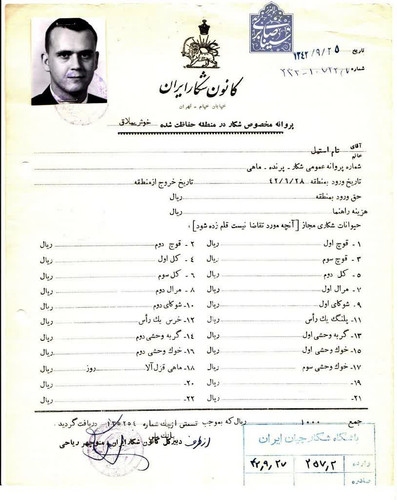 تاریخ ۱۳۴۲/۹/۲۵
شماره
کانون شکار ایران
خیابان خیام - تهران
پروانه مخصوص شکار در منطقه حفاظت شده خوش ییلاق
آقای
خانم
تام استیل
شماره پروانه عمومی شکار - پرنده - ماهی
تاریخ ورود بمنطقه ۴۲/۹/۲۸ تاریخ خروج ازمنطقه
حق ورود بمنطقه ریال
هزینه راهنما ریال
حیوانات شکاری مجاز [آنچه مورد تقاضا نیست قلم زده شود]
۱- قوچ اول ریال ۲- قوچ دوم ریال
۳- قوچ سوم ریال ۴- کل اول ریال
۵- کل دوم ریال ۶- کل سوم ریال
۷- مرال اول ریال ۸- مرال دوم ریال
۹- شوکای اول ریال ۱۰- شوکای دوم ریال
۱۱- پلنگ یك رأس ریال ۱۲- خرس یك رأس ریال
۱۳- گربه وحشی اول ریال ۱۴- گربه وحشی دوم ریال
۱۵- خوك وحشی اول ریال ۱۶- خوك وحشی دوم ریال
۱۷- خوك وحشی سوم ریال ۱۸- ماهی قزل‌آلا روز ریال
۱۹- ریال ۲۰- ریال
۲۱- ریال ۲۲- ریال
جمع ۱۰۰۰ ریال که بموجب شماره دریافت گردید
دبیر کل کانون شکار ایران - منوچهر ریاحی
باشگاه شکارچیان ایران
وارده ۲۵۷،۲ ۴۲،۹،۲۷
صادره